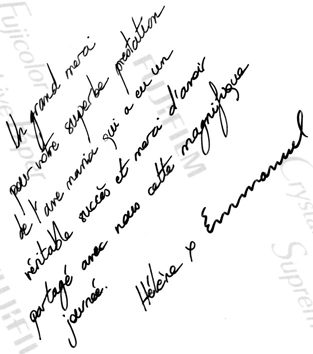 Un grand merci
pour votre superbe prestation
de l'ave maria qui a eu un
véritable succès et merci d'avoir
partagé avec nous cette magnifique
journée.
Hélène & Emmanuel
Fujicolor
FUJIFILM
Crystal
Suprem
FUJIFIL